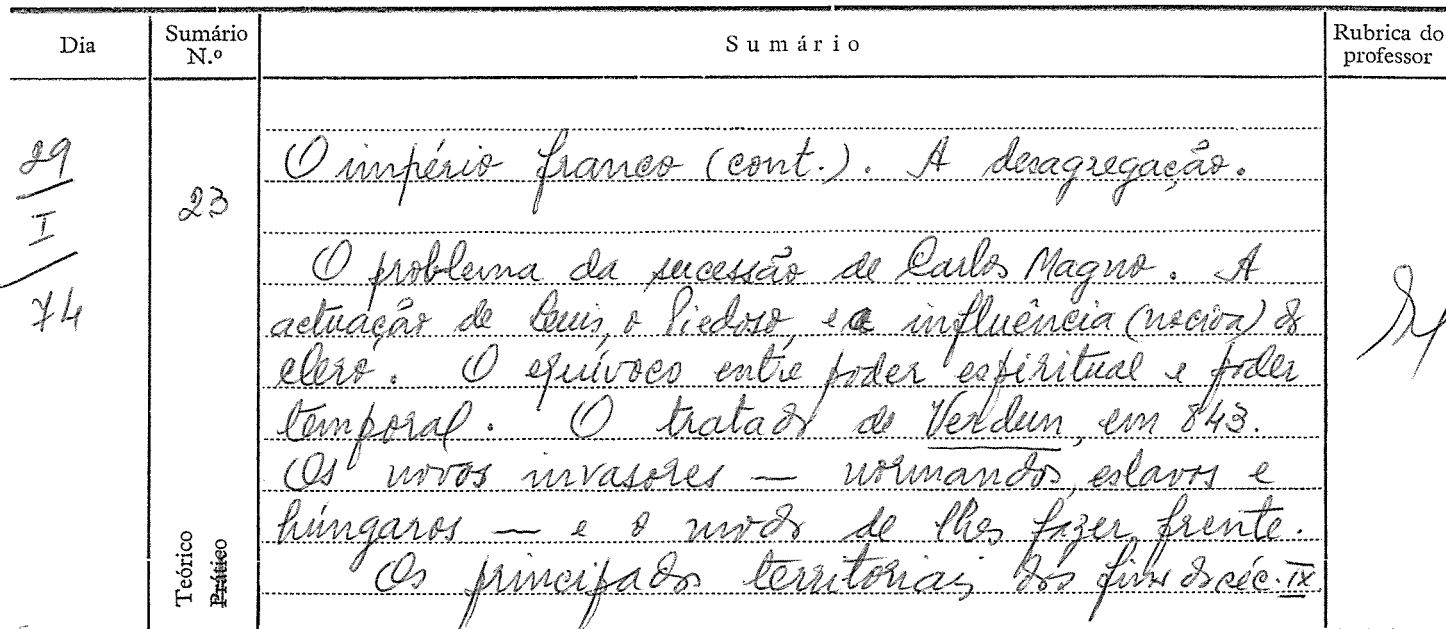 Dia
Sumário N.º
Sumário
Rubrica do professor
29
I
74
23
O império franco (cont.). A desagregação.
O problema da sucessão de Carlos Magno. A
actuação de Luís, o Piedoso, e a influência (nociva) do
clero. O equívoco entre poder espiritual e poder
temporal. O tratado de Verdun, em 843.
Os novos invasores — normandos, eslavos e
húngaros — e o modo de lhes fazer frente.
Os principados territoriais dos fins do séc. IX
Teórico
Prático